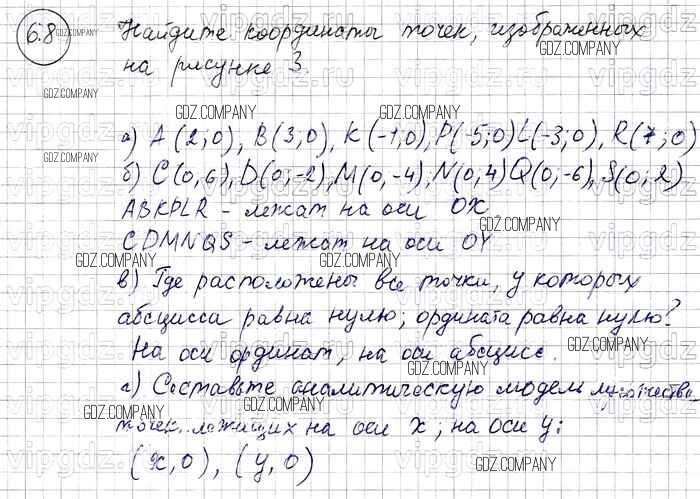 6.8 Найдите координаты точек, изображенных
на рисунке 3.
а) A (2;0), B(3,0), K(-1,0), P(-5;0) L(-3;0), R(7;0)
б) C(0,6), D(0;-2), M(0,-4), N(0,4) Q(0,-6), S(0,2)
ABKPLR - лежат на оси OX
CDMNQS - лежат на оси OY
в) Где расположены все точки, у которых
абсцисса равна нулю; ордината равна нулю?
На оси ординат, на оси абсцисс.
г) Составьте аналитическую модель множества
точек, лежащих на оси x; на оси y:
(x,0), (y,0)
GDZ.COMPANY
vipgdz.ru